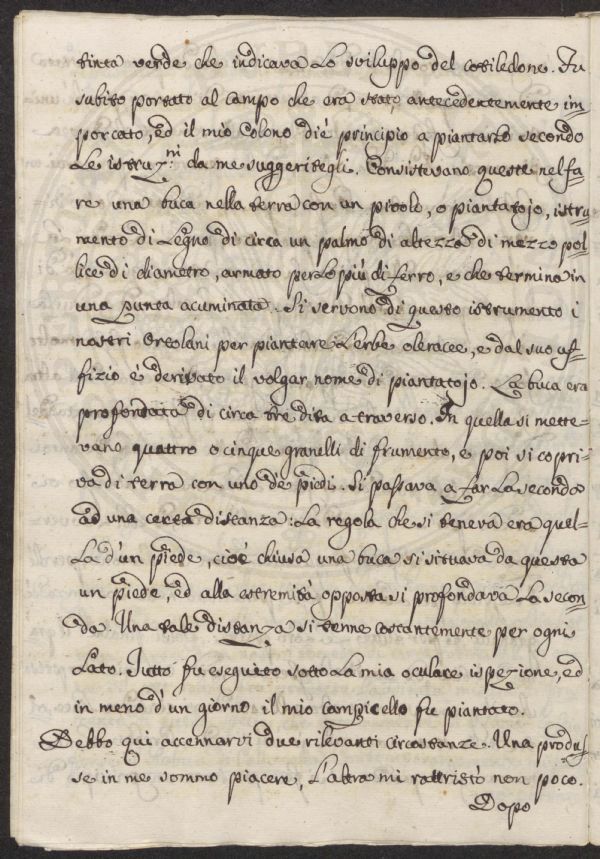 tinta verde che indicava lo sviluppo del cotiledone. Fu
subito portato al campo che era stato antecedentemente im-
porcato, ed il mio Colono diè principio a piantarlo secondo
le istruz.ni da me suggeritegli. Consistevano queste nel fa-
re una buca nella terra con un pivolo, o piantatojo, istru-
mento di legno di circa un palmo di altezza di mezzo pol-
lice di diametro, armato per lo più di ferro, e che termina in
una punta acuminata. Si servono di questo istrumento i
nostri Ortolani per piantare l'erbe oleracee, e dal suo uf-
fizio è derivato il volgar nome di piantatojo. La buca era
profondata di circa tre dita a traverso. In quella si mette-
vano quattro o cinque granelli di frumento, e poi si copri-
va di terra con uno de' piedi. Si passava a far la seconda
ad una certa distanza: La regola che si teneva era quel-
la d'un piede, cioè chiusa una buca si situava da questa
un piede, ed alla estremità opposta si profondava la secon-
da. Una tale distanza si tenne costantemente per ogni
lato. Tutto fu eseguito sotto la mia oculare ispezione, ed
in meno d'un giorno il mio campicello fu piantato.
Debbo qui accennarvi due rilevanti circostanze. Una produs-
se in me sommo piacere, l'altra mi rattristò non poco.
Dopo